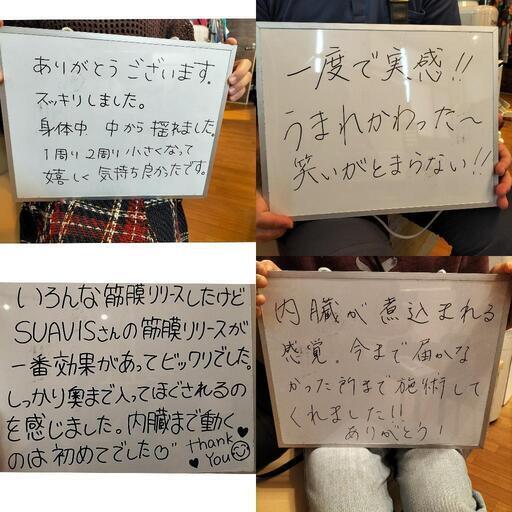 ありがとうございます。
スッキリしました。
身体中 中から 揺れました。
1周り 2周り 小さくなって
嬉しく 気持ち良かったです。
一度で実感!!
うまれかわった〜
笑いがとまらない!!
いろんな筋膜リリースしたけど
SUAVISさんの筋膜リリースが
一番効果があってビックリでした。
しっかり奥まで入ってほぐされるの
を感じました。内臓まで動く
のは初めてでした♡
thank
You
内臓が煮込まれる
感覚。今まで届かな
かった所まで施術して
くれました!!
ありがとう!